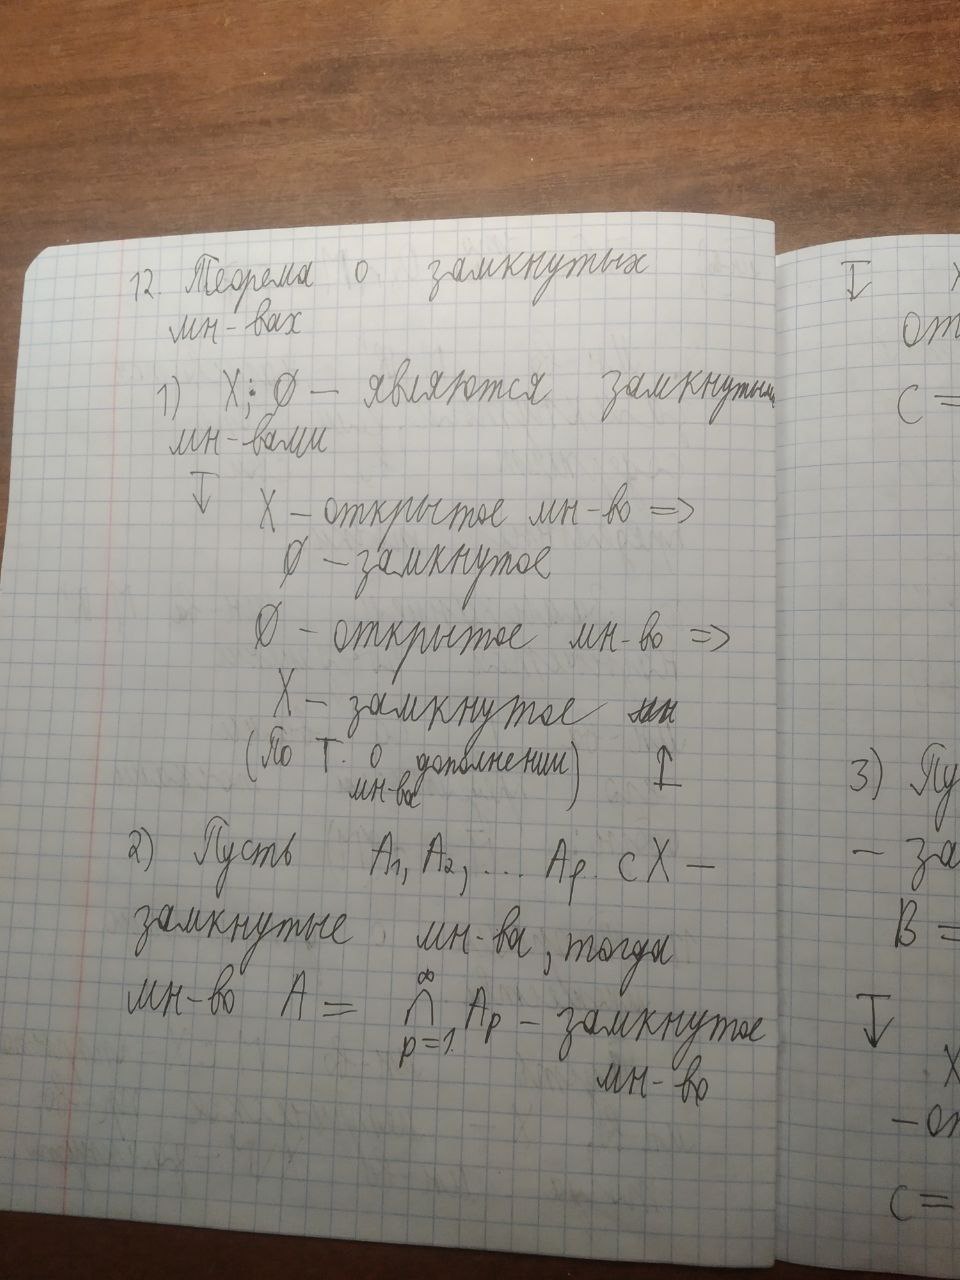 12. Теорема о замкнутых
мн-вах
1) X; Ø — являются замкнутыми
мн-вами
X — открытое мн-во =>
Ø — замкнутое
Ø — открытое мн-во =>
X — замкнутое мн
(По Т. о дополнении)
мн-ва
2) Пусть A₁, A₂, ... Aₚ. ⊂ X —
замкнутые мн-ва, тогда
мн-во A = ∞
⋂ Aₚ — замкнутое
p=1.
мн-во
X
от
C =
3) Пу
— за
B =
X
— от
C =